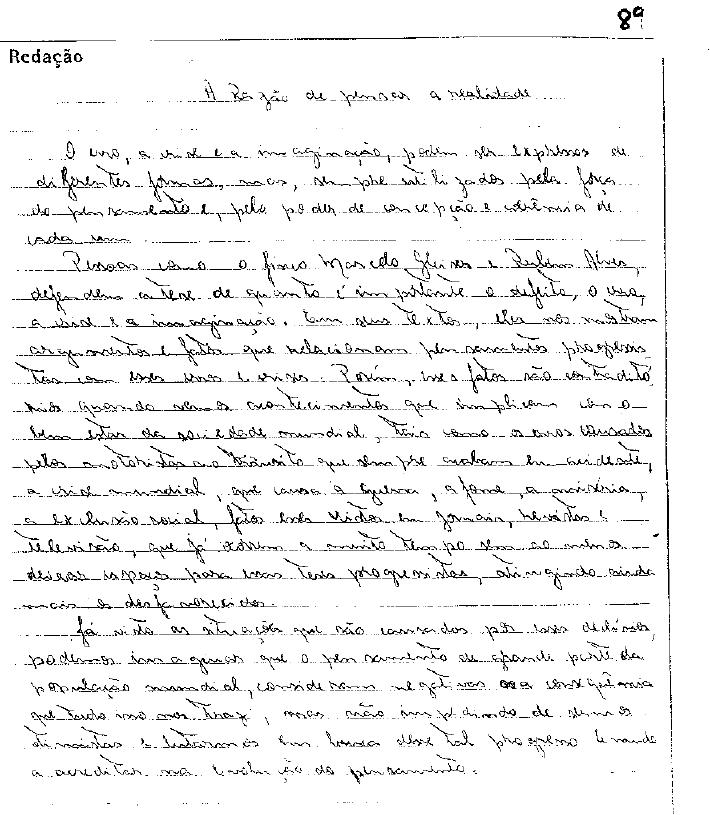 8ª
Redação
A Razão de pensar a realidade
O erro, a crise e a imaginação, podem ser expressos de
diferentes formas, mas, sempre utilizados pela força
do pensamento e, pelo poder de concepção e coerência de
cada um
Pessoas como o físico Marcelo Gleiser e Rubem Alves,
defendem a tese de quanto é importante o defeito, o erro,
a crise e a imaginação. Em seus textos, eles nos mostram
argumentos e fatos que relacionam pensamentos progressis-
tas com esses erros e crises. Porém, esses fatos são contraditó-
rios quando vemos acontecimentos que implicam com o
bem estar da sociedade mundial, tais como os erros causados
pelos motoristas no trânsito que sempre acabam em acidente,
a crise mundial, que causa a guerra, a fome, a miséria,
a exclusão social, fatos esses vistos em jornais, revistas e
televisão, que já ocorrem a muito tempo sem ao menos
deixar espaço para essas teses progressistas, atingindo ainda
mais os desfavorecidos.
Já visto as situações que são causadas por esses
podemos imaginar que o pensamento de grande parte da
população mundial, consideram negativas a consequência
que tudo isso nos traz, mas não impedindo de sermos
otimistas e lutarmos em busca desse tal progresso
a acreditar na evolução do pensamento.